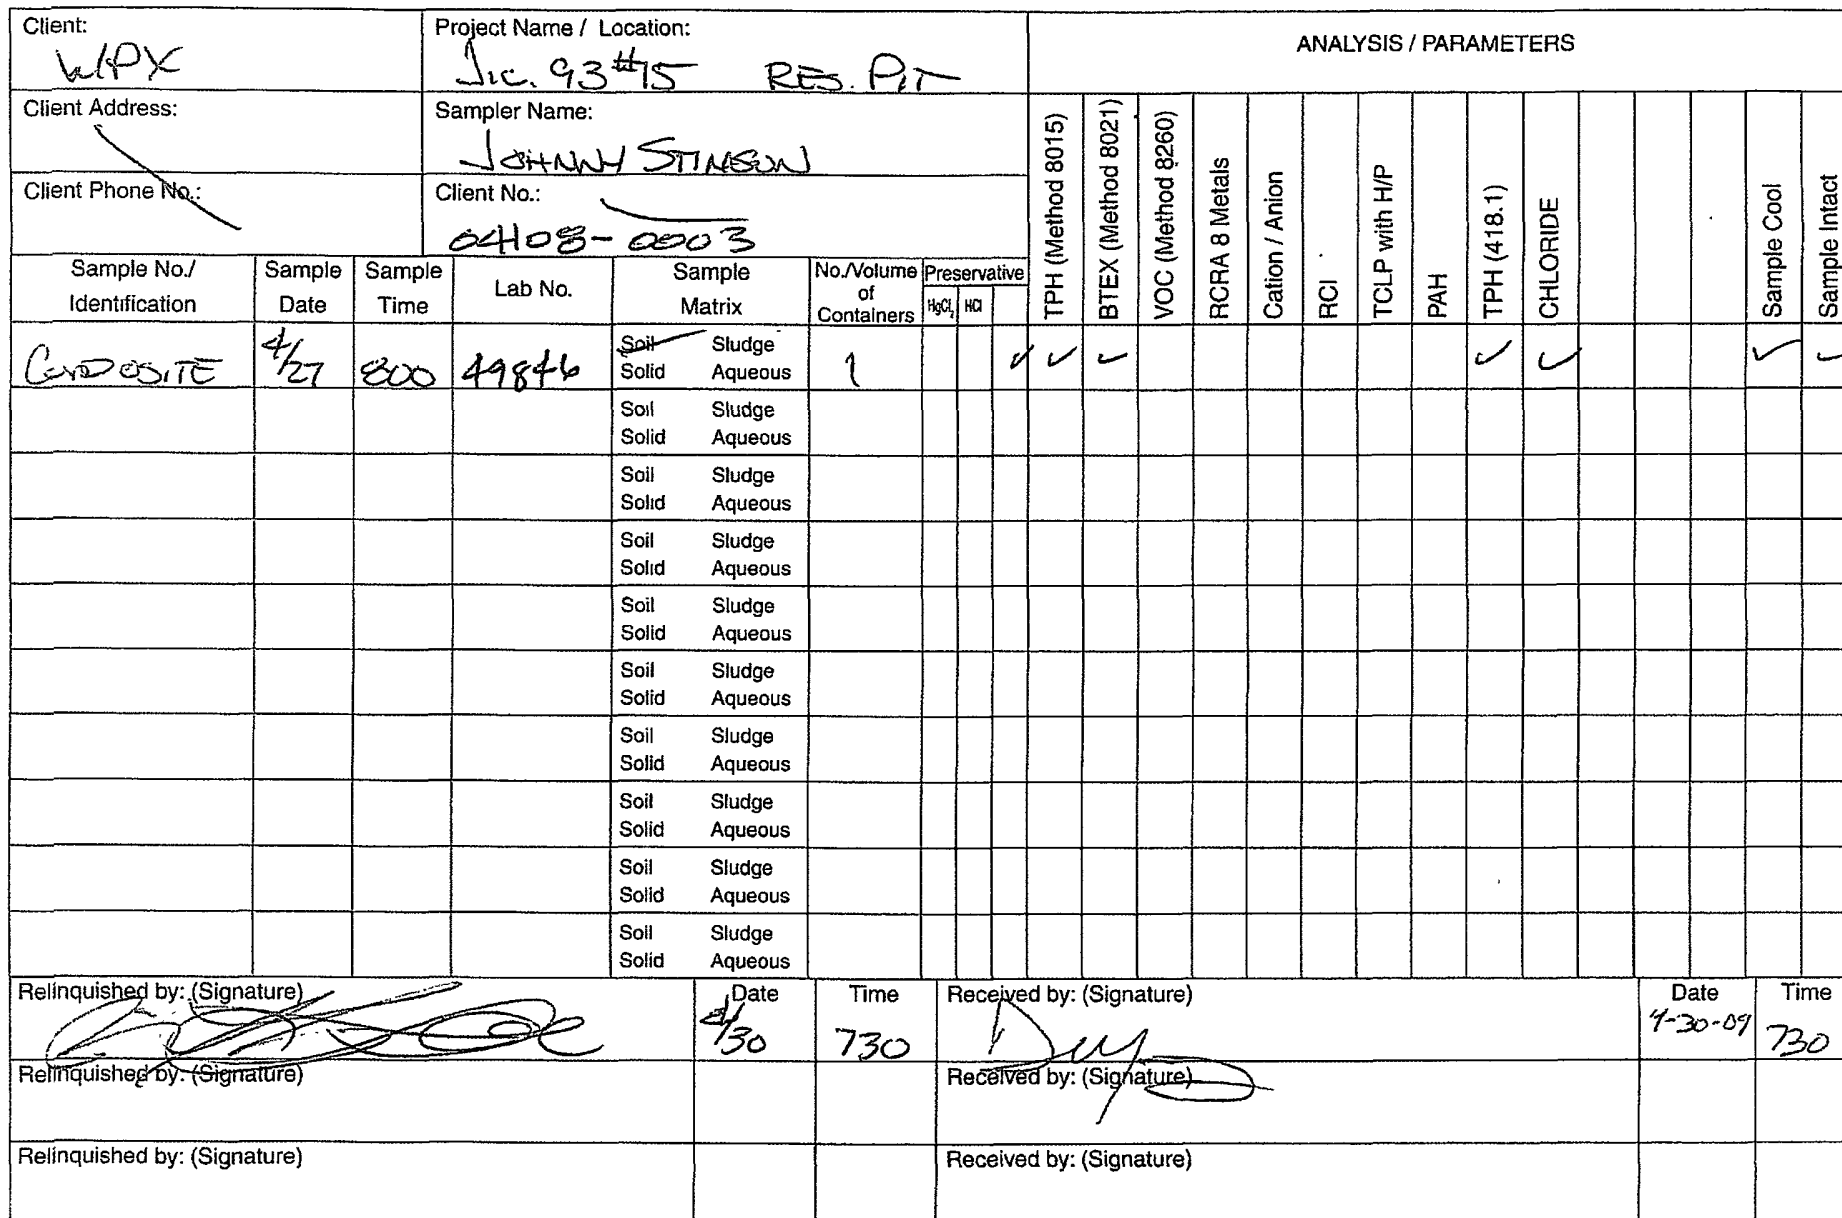 Client:
WPX
Project Name / Location:
Jic. 93 #15 RES. PIT
ANALYSIS / PARAMETERS
Client Address:
Sampler Name:
JOHNNY STINSON
Client Phone No.:
Client No.:
04108-0003
Sample No./ Identification
Sample Date
Sample Time
Lab No.
Sample Matrix
No./Volume of Containers
Preservative
HgCl2 HCl
TPH (Method 8015)
BTEX (Method 8021)
VOC (Method 8260)
RCRA 8 Metals
Cation / Anion
RCI
TCLP with H/P
PAH
TPH (418.1)
CHLORIDE
Sample Cool
Sample Intact
COMPOSITE 4/27 800 49846 Soil Sludge 1 ✓ ✓ ✓ ✓ ✓ ✓ ✓
Solid Aqueous
Soil Sludge
Solid Aqueous
Soil Sludge
Solid Aqueous
Soil Sludge
Solid Aqueous
Soil Sludge
Solid Aqueous
Soil Sludge
Solid Aqueous
Soil Sludge
Solid Aqueous
Soil Sludge
Solid Aqueous
Soil Sludge
Solid Aqueous
Soil Sludge
Solid Aqueous
Relinquished by: (Signature)
Date
4/30
Time
730
Received by: (Signature)
Date
4-30-09
Time
730
Relinquished by: (Signature)
Received by: (Signature)
Relinquished by: (Signature)
Received by: (Signature)